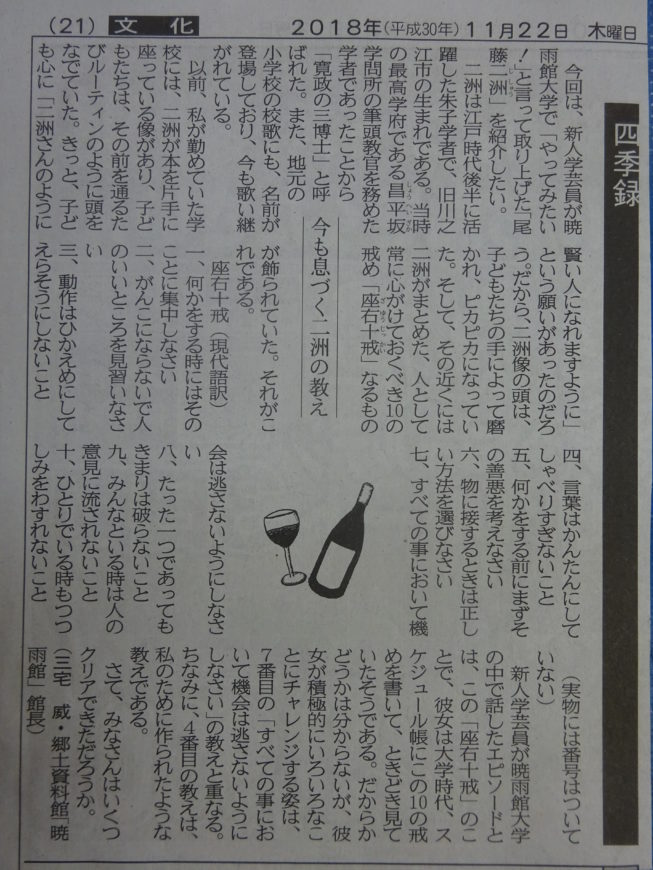 (21) 文化 2018年(平成30年) 11月22日 木曜日
四季録
今も息づく二洲の教え
今回は、新人学芸員が暁
雨館大学で「やってみたい
！」と言って取り上げた「尾
藤二洲」を紹介したい。
二洲は江戸時代後半に活
躍した朱子学者で、旧川之
江市の生まれである。当時
の最高学府である昌平坂
学問所の筆頭教官を務めた
学者であったことから
「寛政の三博士」と呼
ばれた。また、地元の
小学校の校歌にも、名前が
登場しており、今も歌い継
がれている。
以前、私が勤めていた学
校には、二洲が本を片手に
座っている像があり、子ど
もたちは、その前を通るた
びルーティンのように頭を
なでていた。きっと、子ど
も心に「二洲さんのように
賢い人になれますように」
という願いがあったのだろ
う。だから、二洲像の頭は、
子どもたちの手によって磨
かれ、ピカピカになってい
た。そして、その近くには
二洲がまとめた、人として
常に心がけておくべき10の
戒め「座右十戒」なるもの
が飾られていた。それがこ
れである。
座右十戒（現代語訳）
一、何かをする時にはその
ことに集中しなさい
二、がんこにならないで人
のいいところを見習いなさ
い
三、動作はひかえめにして
えらそうにしないこと
四、言葉はかんたんにして
しゃべりすぎないこと
五、何かをする前にまずそ
の善悪を考えなさい
六、物に接するときは正し
い方法を選びなさい
七、すべての事において機
会は逃さないようにしなさ
い
八、たった一つであっても
きまりは破らないこと
九、みんなといる時は人の
意見に流されないこと
十、ひとりでいる時もつつ
しみをわすれないこと
（実物には番号はついて
いない）
新人学芸員が暁雨館大学
の中で話したエピソードと
は、この「座右十戒」のこ
とで、彼女は大学時代、ス
ケジュール帳にこの10の戒
めを書いて、ときどき見て
いたそうである。だからか
どうかは分からないが、彼
女が積極的にいろいろなこ
とにチャレンジする姿は、
7番目の「すべての事にお
いて機会は逃さないように
しなさい」の教えと重なる。
ちなみに、4番目の教えは、
私のために作られたような
教えである。
さて、みなさんはいくつ
クリアできただろうか。
（三宅 威・郷土資料館「暁
雨館」館長）